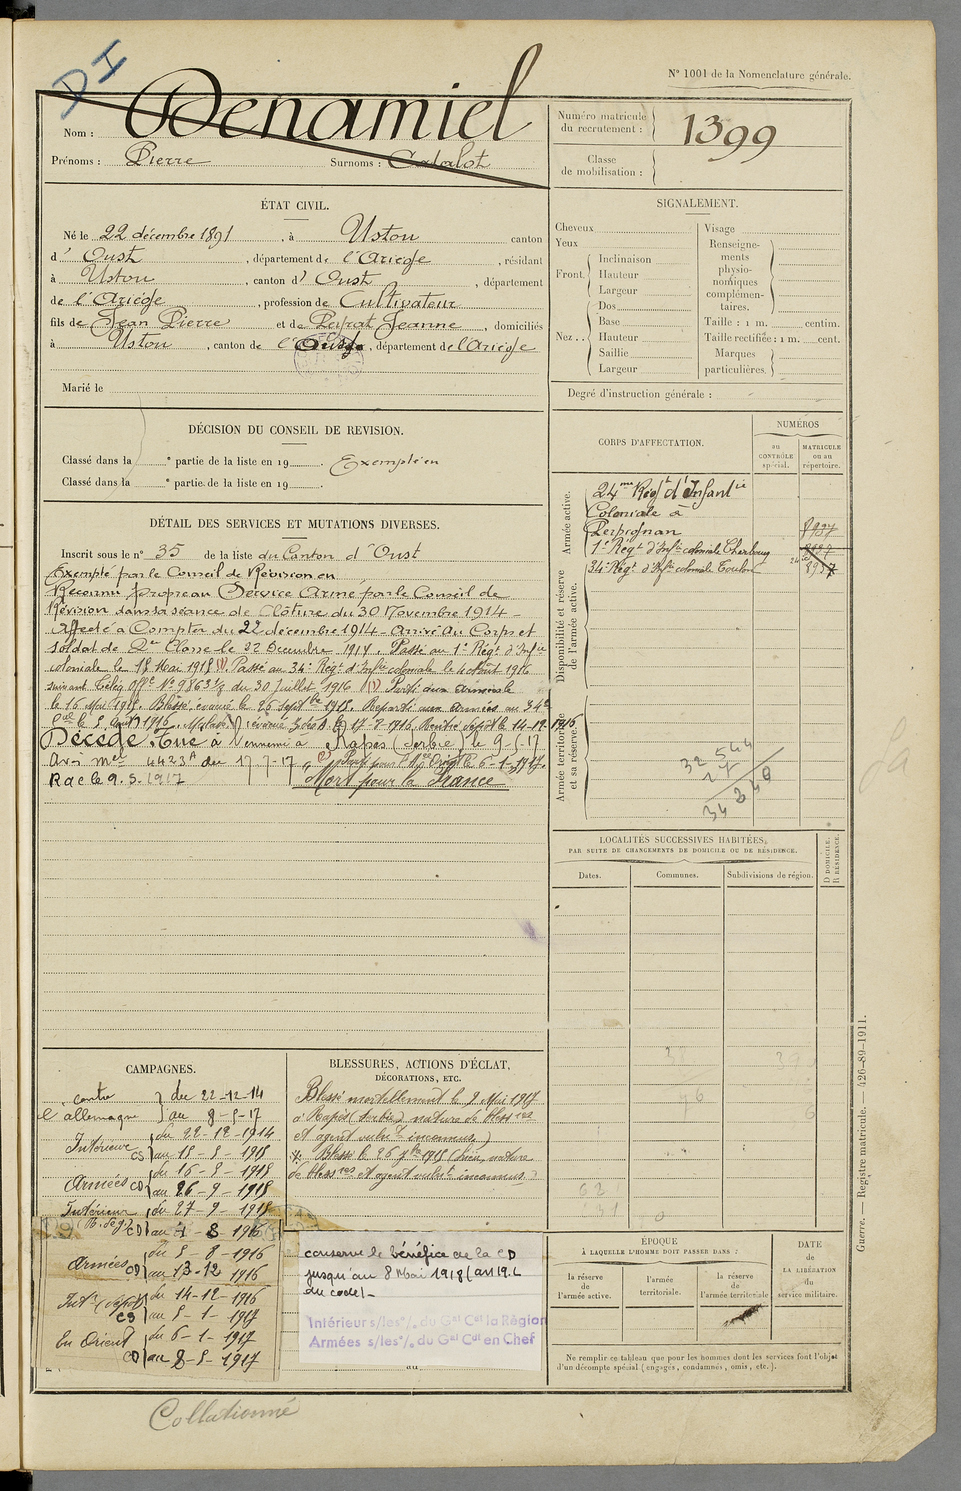 DI
N° 1001 de la Nomenclature générale.
Nom : Denamiel
Prénoms : Pierre Surnoms : Catalot
Numéro matricule du recrutement : 1399
Classe de mobilisation :
ÉTAT CIVIL.
Né le 22 décembre 1891, à Ustou canton
d' Oust, département de l'Ariège, résidant
à Ustou, canton d' Oust, département
de l'Ariège, profession de Cultivateur
fils de Jean Pierre et de Peyrat Jeanne, domiciliés
à Ustou, canton de l'Oust, département de l'Ariège
Marié le
SIGNALEMENT.
Cheveux
Yeux
Front. Inclinaison
Hauteur
Largeur
Nez.. Dos
Base
Hauteur
Saillie
Largeur
Visage
Renseignements physionomiques complémentaires.
Taille : 1 m. centim.
Taille rectifiée : 1 m. cent.
Marques particulières.
Degré d'instruction générale :
DÉCISION DU CONSEIL DE REVISION.
Classé dans la e partie de la liste en 19 . Exempté en
Classé dans la e partie de la liste en 19 .
DÉTAIL DES SERVICES ET MUTATIONS DIVERSES.
Inscrit sous le n° 35 de la liste du Canton d'Oust
Exempté par le Conseil de Révision en
Reconnu propre au Service Armé par le Conseil de
Révision dans sa séance de Clôture du 30 Novembre 1914 -
Affecté à Compter du 22 décembre 1914 - Arrivé au Corps et
soldat de 2me Classe le 22 Décembre 1914. Passé au 1er Régt d'Infie
coloniale le 15 Mai 1915 (1). Passé au 34e Régt d'Infie coloniale le 4 Août 1916
suivant Télég. Off No 9863 1/2 du 30 Juillet 1916 (1) Parti aux armées le
le 16 Mai 1915. Blessé, évacué le 26 Septbre 1915. Reparti aux armées au 34e
Cal le 5 août 1916. Malade évacué le 17-8-1916. Rentré dépôt le 14-12-1916
Décédé. Tué à l'ennemi à Rapès (Serbie) le 9-5-17
Avis mel 4423 A du 17-7-17 (2) Parti pour l'Mée Orient le 6-1-1917.
Rac le 9.5.1917 Mort pour la France
CORPS D'AFFECTATION.
NUMÉROS
au CONTRÔLE spécial.
MATRICULE ou au répertoire.
Armée active.
24me Régt d'Infantie
Coloniale à
Perpignan 8937
1er Régt d'Infie coloniale Cherbourg 8937
34e Régt d'Infie coloniale Toulon 8937
Disponibilité et réserve de l'armée active.
Armée territoriale et sa réserve.
32 544
34 240
LOCALITÉS SUCCESSIVES HABITÉES,
PAR SUITE DE CHANGEMENTS DE DOMICILE OU DE RÉSIDENCE.
Dates. Communes. Subdivisions de région. D DOMICILE. R RÉSIDENCE.
CAMPAGNES.
contre l'allemagne du 22-12-14
au 8-5-17
Intérieur CS du 22-12-1914
au 15-5-1915
Armées CD du 16-5-1915
au 26-9-1915
Intérieur (B. Seg.) CD du 27-9-1915
au 4-8-1916
Armées CD du 5-8-1916
au 13-12-1916
Intr (dépôt) CS du 14-12-1916
au 5-1-1917
En Orient CD du 6-1-1917
au 8-5-1917
BLESSURES, ACTIONS D'ÉCLAT,
DÉCORATIONS, ETC.
Blessé mortellement le 9 Mai 1917
à Rapès (Serbie) nature de blessres
et agent vulnt inconnus)
Blessé le 26 7bre 1915 (lieu, nature
de blessres et agent vulnt inconnus.)
conserve le bénéfice de la CD
jusqu'au 8 Mai 1918 (art 19.L
du code) -
Intérieur s/les o/o du Gal Cdt la Région
Armées s/les o/o du Gal Cdt en Chef
au
ÉPOQUE
À LAQUELLE L'HOMME DOIT PASSER DANS :
la réserve de l'armée active.
l'armée territoriale.
la réserve de l'armée territoriale
DATE de LA LIBÉRATION du service militaire.
Ne remplir ce tableau que pour les hommes dont les services font l'objet
d'un décompte spécial (engagés, condamnés, omis, etc.).
Guerre. — Registre matricule. — 426-89-1911.
Collationné